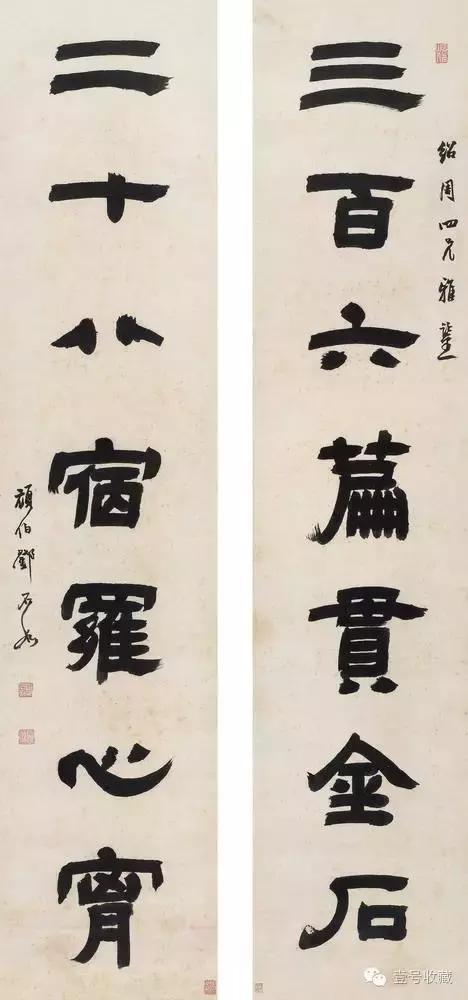 紹周四兄雅鑒
三百六篇貫金石
二十八宿羅心胷
頑伯鄧石如
壹号收藏